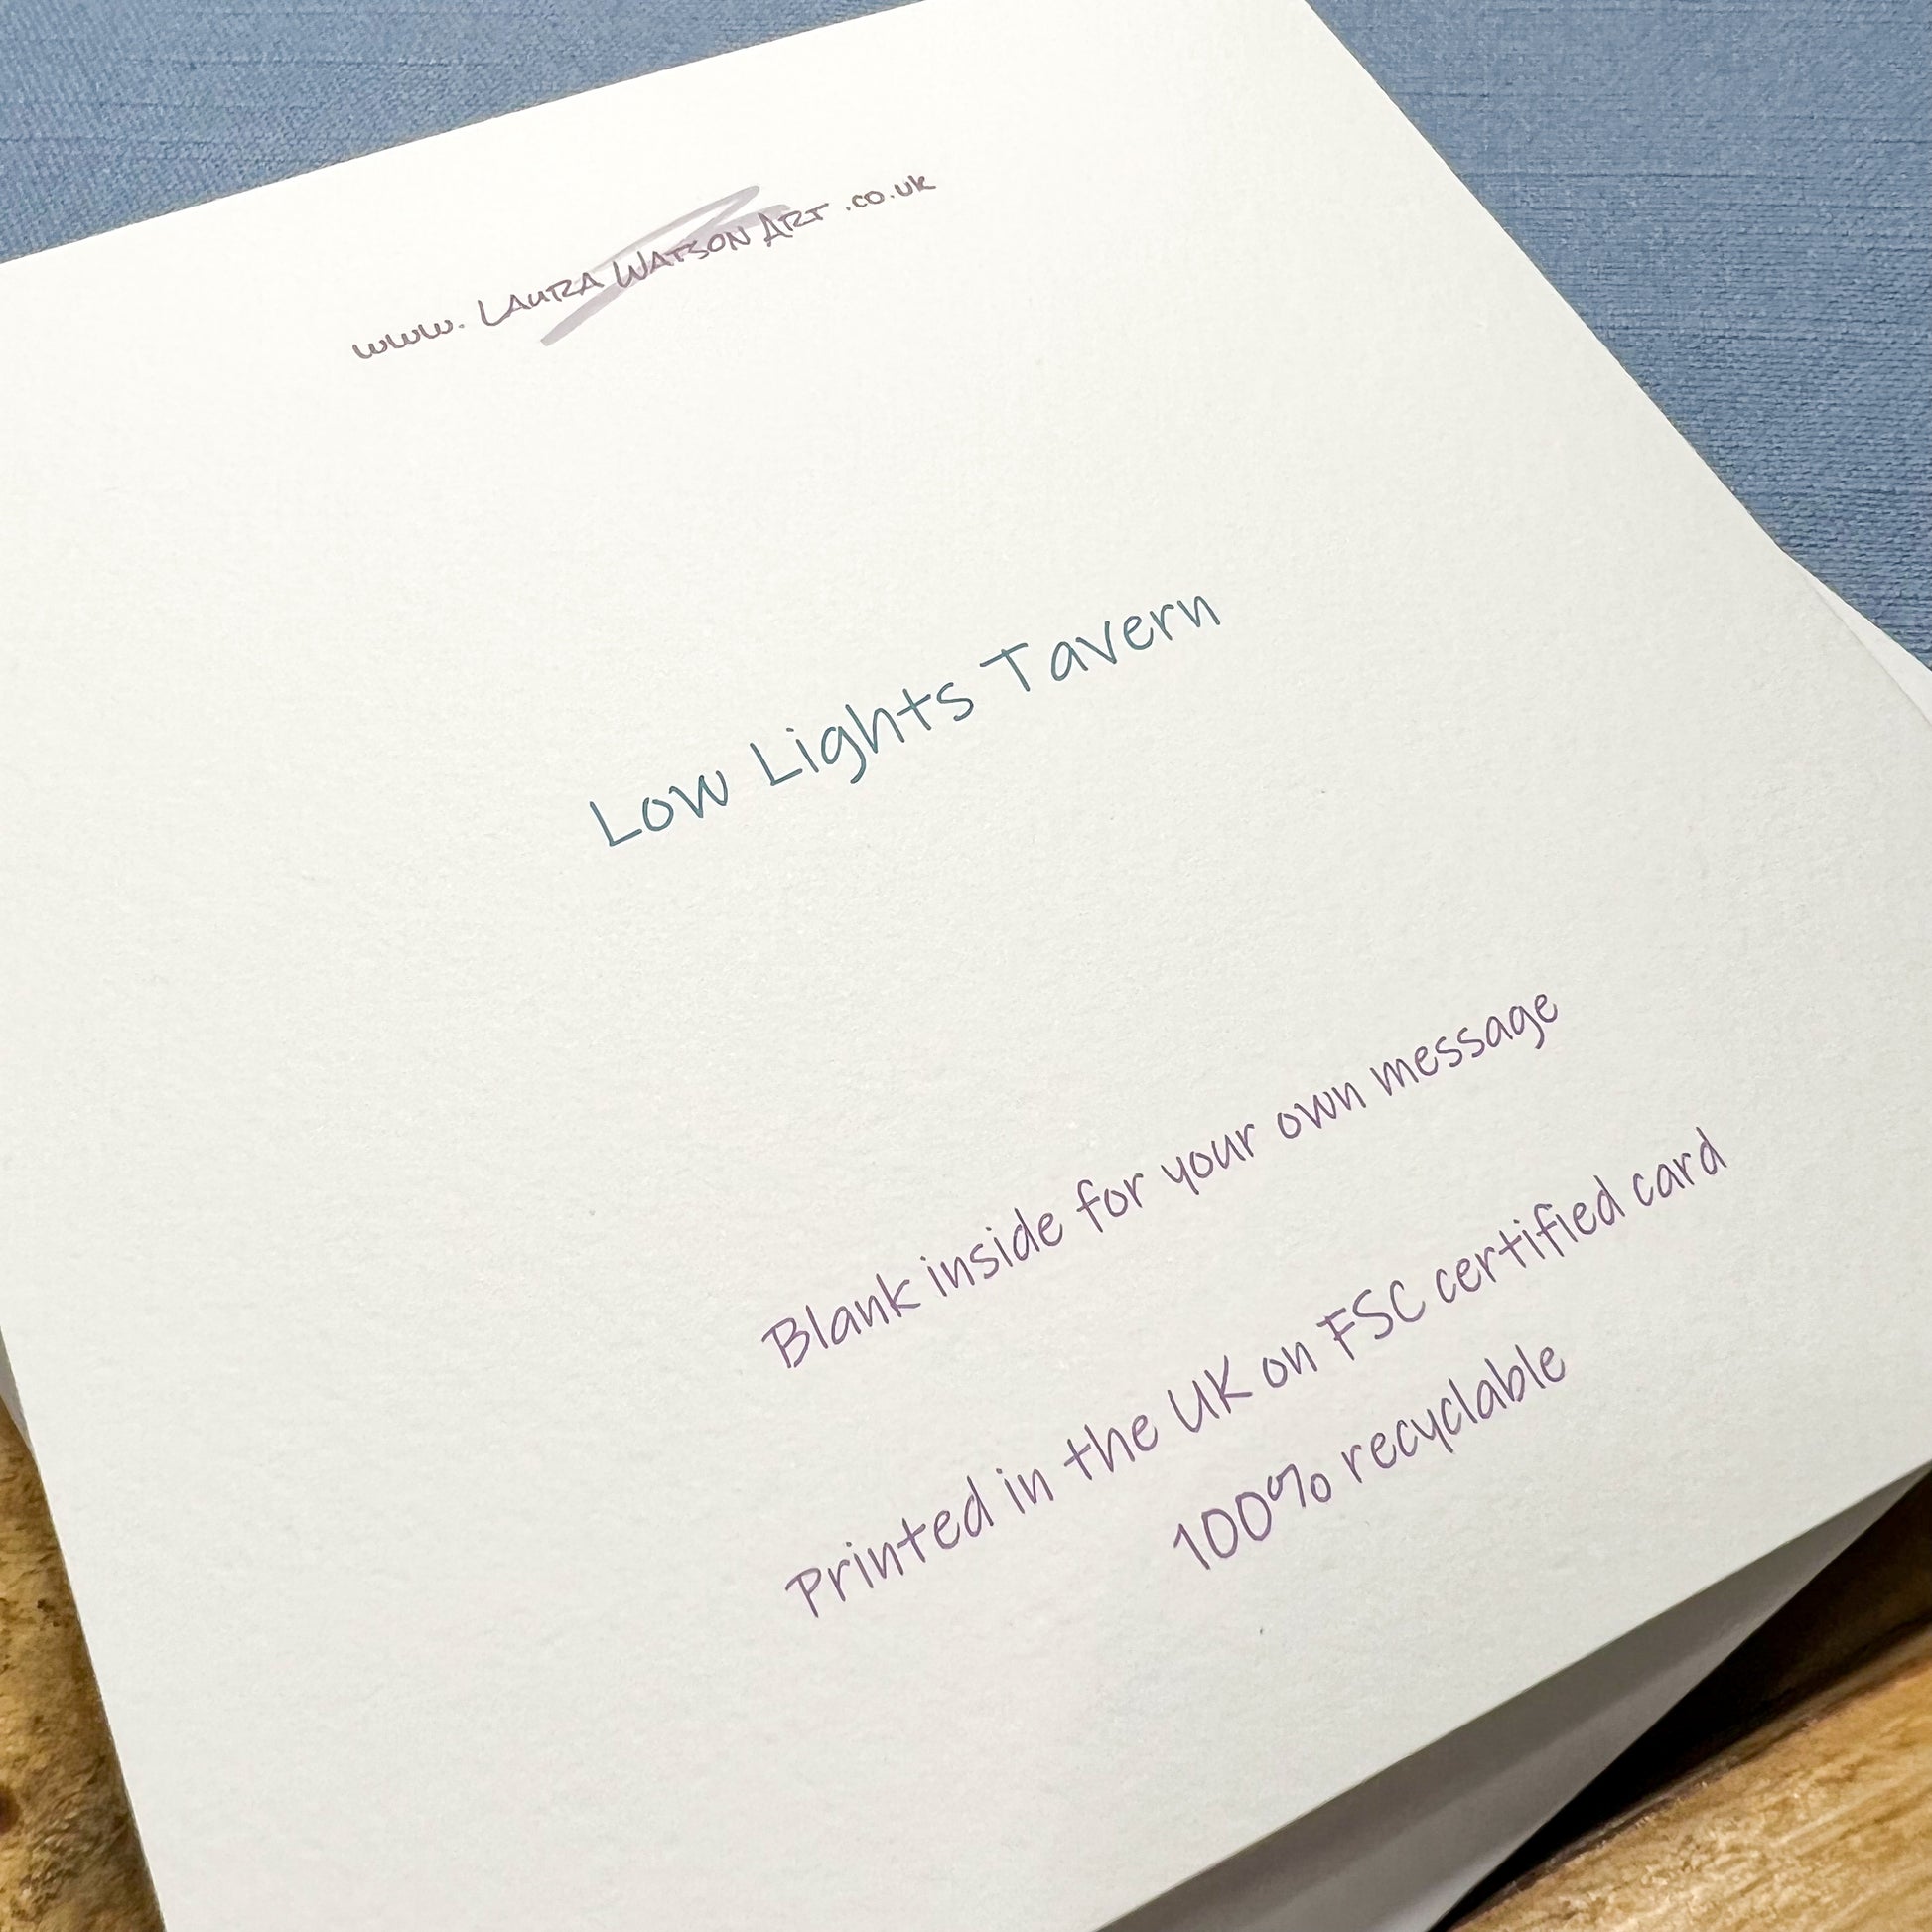 www. LAURA WATSON ART .co.uk
Low Lights Tavern
Blank inside for your own message
Printed in the UK on FSC certified card
100% recyclable